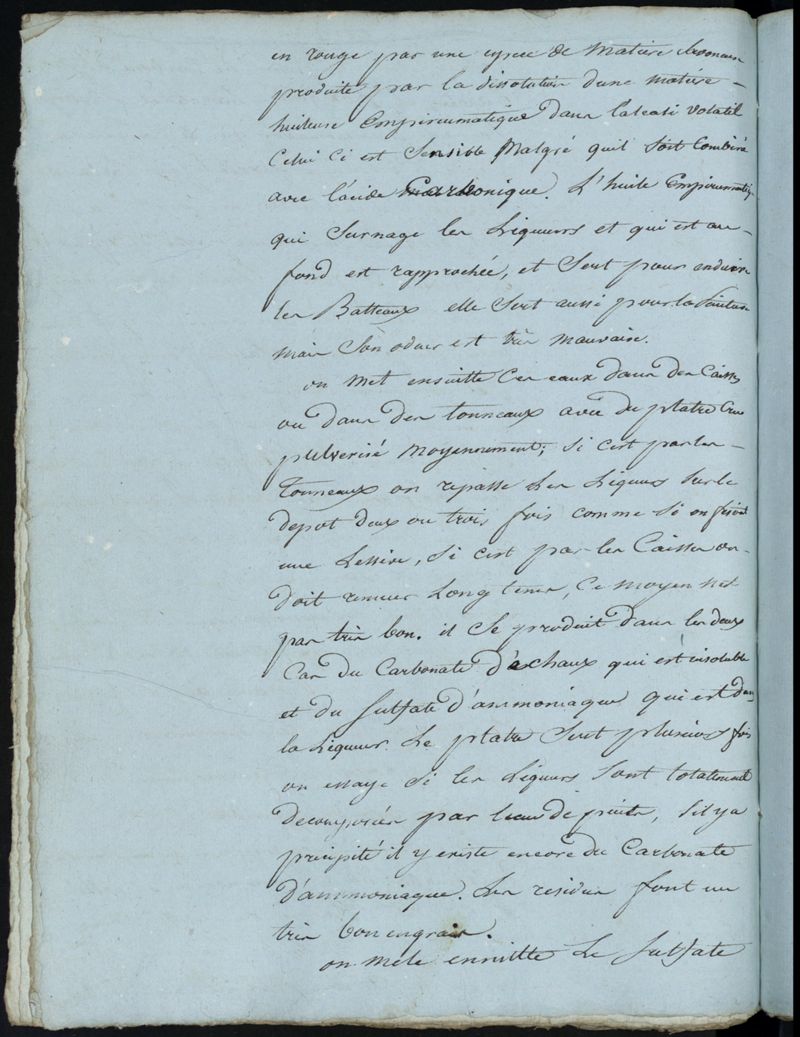 en rouge par une espece de Matiere Savoneuse
produite par la dissolution d'une matiere
huileuse Empireumatique dans l'alcali Volatil
Celui Ci est Sensible Malgré quil Soit Combiné
avec l'acide Carbonique. L'huile Empireumatiq
qui Surnage les Liqueurs et qui est au
fond est rapprochée, et Sert pour enduire
les Batteaux elle Sert aussi pour la
mais Son odeur est très mauvaise.
on Met ensuitte Ces eaux dans des Caisses
ou dans des tonneaux avec du platre Cru
pulverisé Moyennement; Si c'est par les
Tonneaux on repasse Les Liqueurs Sur le
depot deux ou trois fois comme Si on fesoit
une Lessive, Si c'est par les Caisses on
doit remuer Long tems, Ce moyen n'est
pas très bon. il Se produit dans les deux
Cas du Carbonate de chaux qui est insoluble
et du Sulfate d'ammoniaque qui est dans
la Liqueur. Le platre Sert plusieurs fois
on essaye Si les Liqueurs Sont totalement
decomposées par l'eau de puits, S'il y a
precipité il y existe encore du Carbonate
d'ammoniaque. Les residus font un
très bon engrais.
on Mele ensuitte Le Sulfate